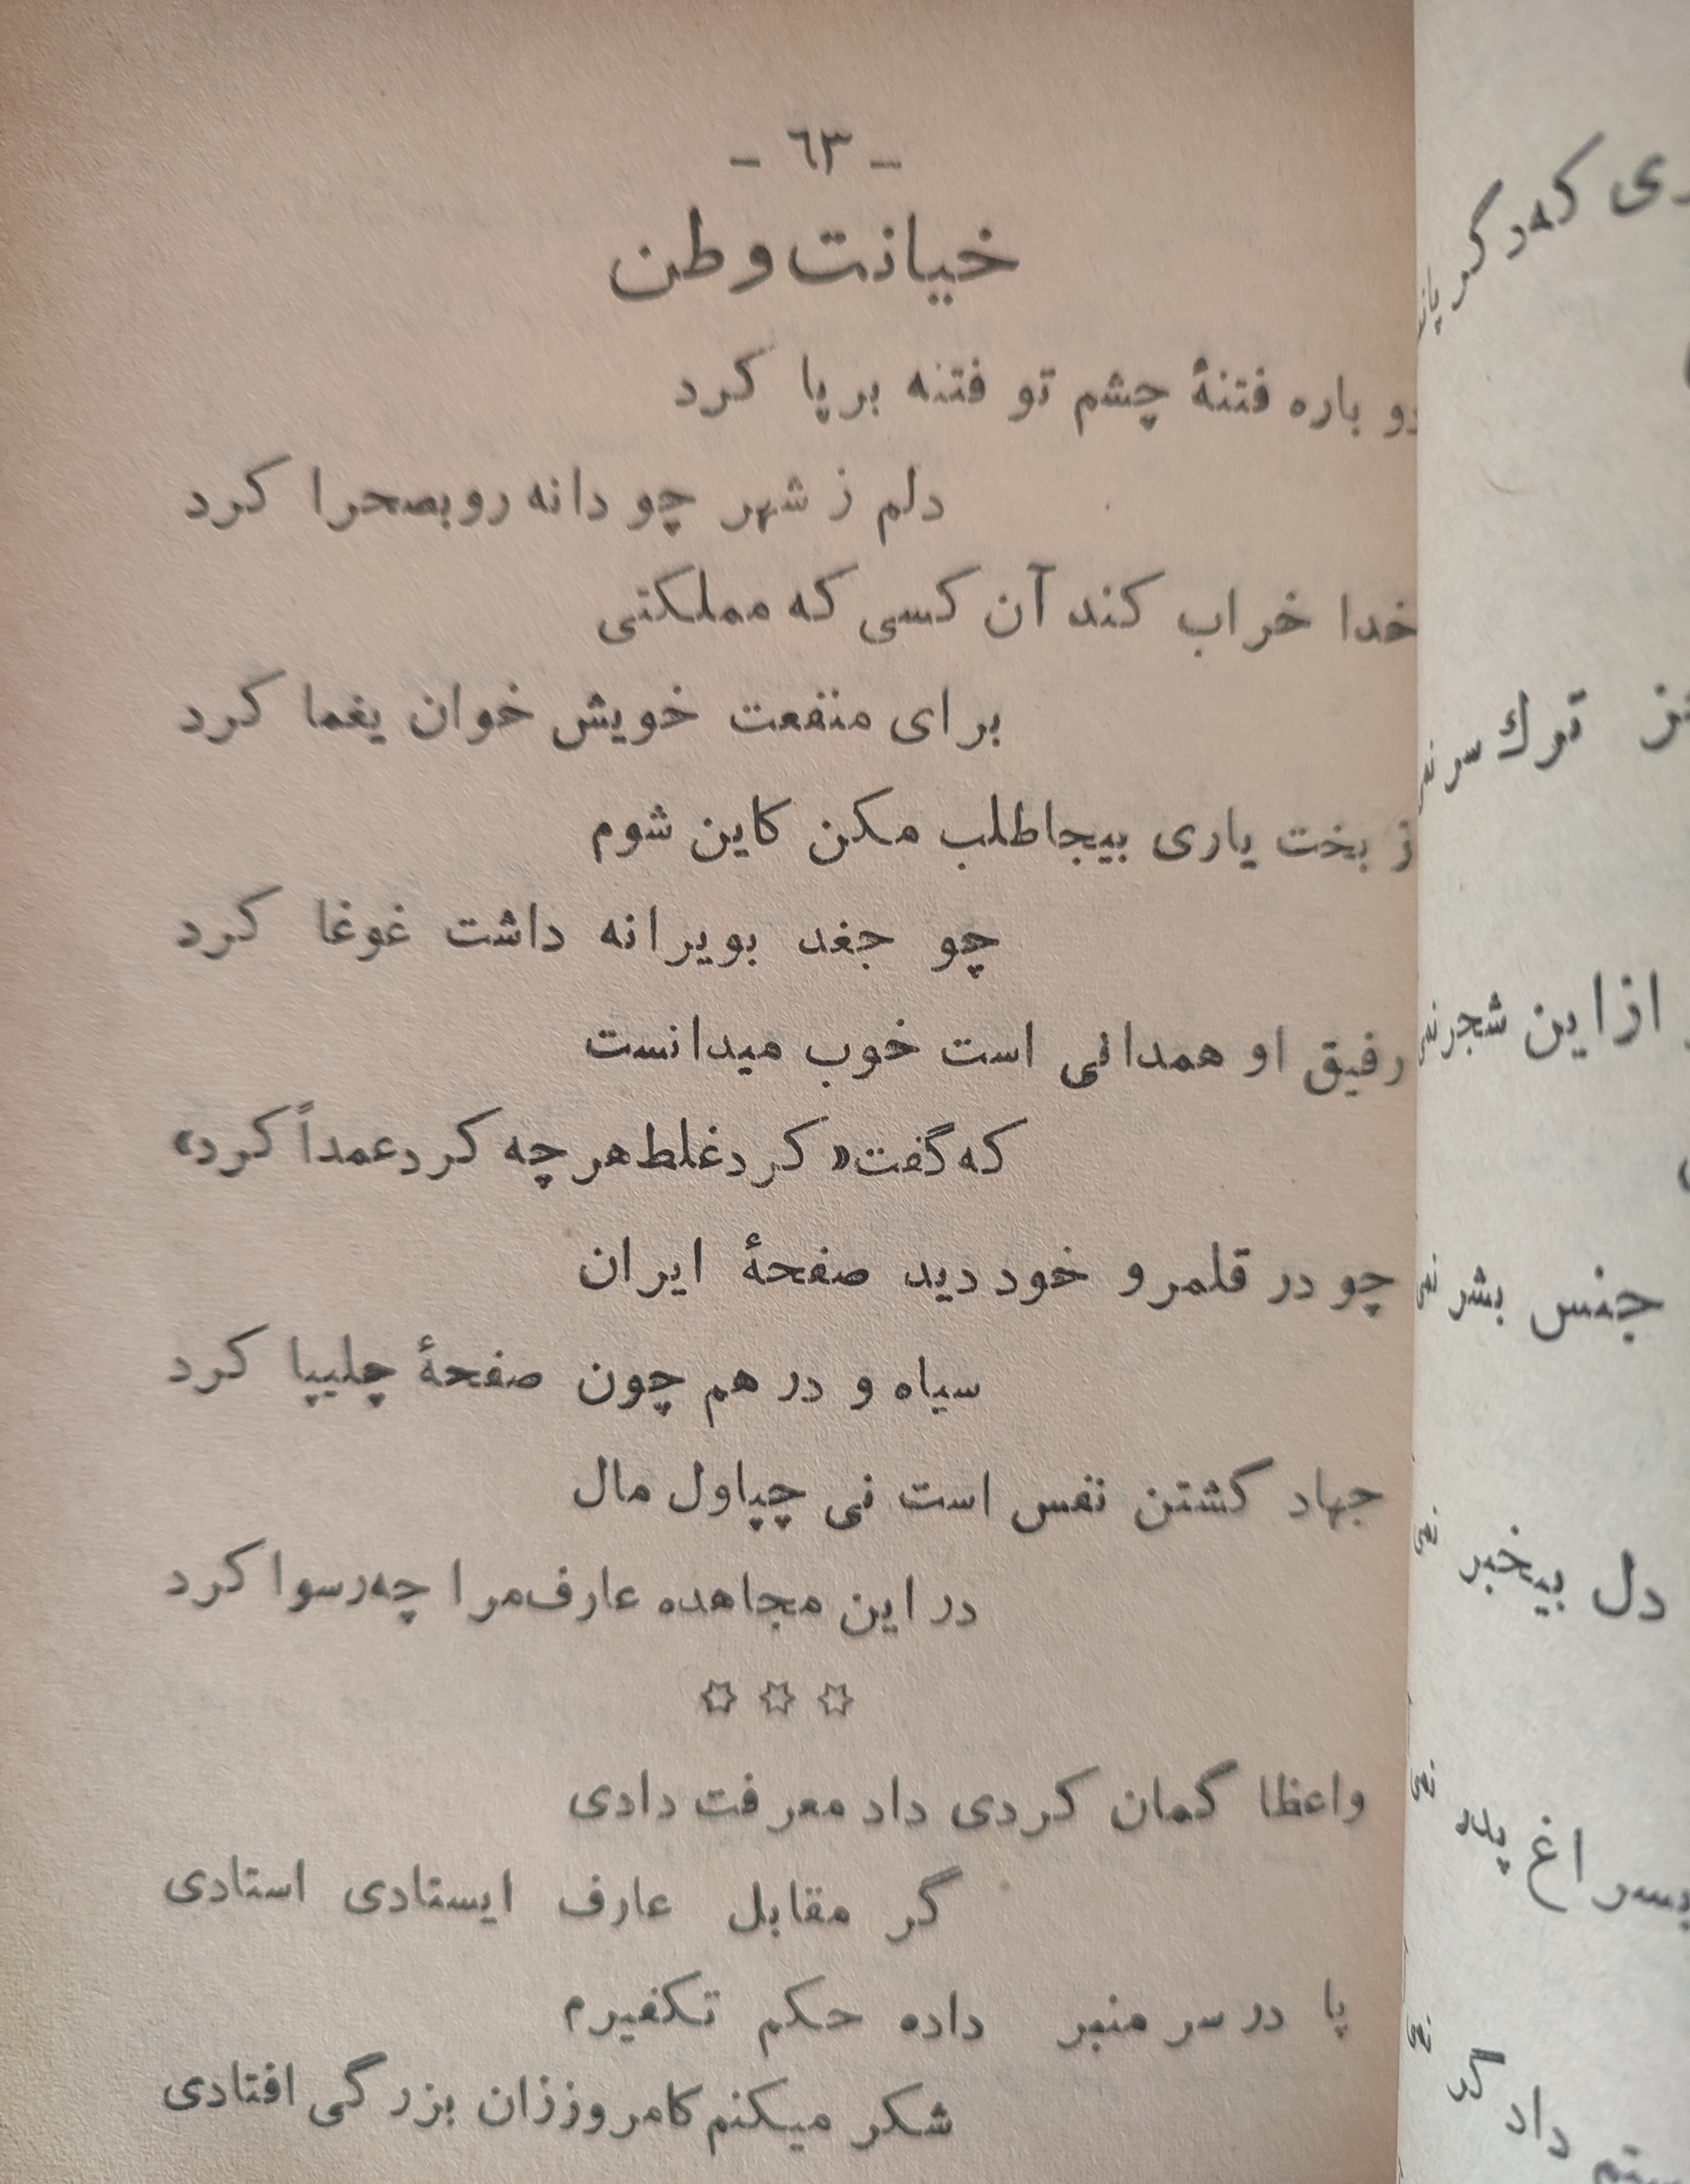 - ٦٣ -
خیانت وطن
دو باره فتنهٔ چشم تو فتنه بر پا کرد
دلم ز شهر چو دانه رو بصحرا کرد
خدا خراب کند آن کسی که مملکتی
برای منفعت خویش خوان یغما کرد
ز بخت یاری بیجا طلب مکن کاین شوم
چو جغد بویرانه داشت غوغا کرد
رفیق او همدانی است خوب میدانست
که گفت «کرد غلط هر چه کرد عمداً کرد»
چو در قلمرو خود دید صفحهٔ ایران
سیاه و در هم چون صفحهٔ چلیپا کرد
جهاد کشتن نفس است نی چپاول مال
در این مجاهده عارف مرا چه رسوا کرد
واعظا گمان کردی داد معرفت دادی
گر مقابل عارف ایستادی استادی
پا در سر منبر داده حکم تکفیرم
شکر میکنم کامروز زان بزرگی افتادی
که د گر
ترك سر
از این شجر
جنس بشر
دل بیخبر
داد گر